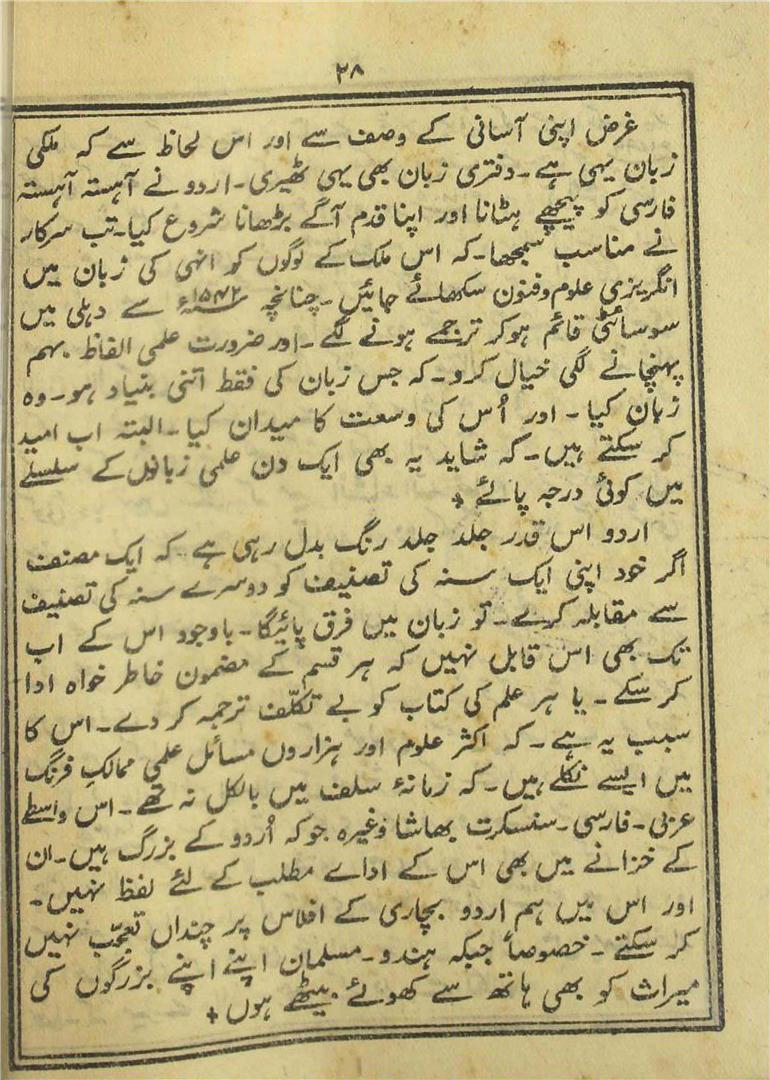 ۲۸
غرض اپنی آسانی کے وصف سے اور اس لحاظ سے کہ ملکی
زبان یہی ہے۔ دفتری زبان بھی یہی ٹھیری۔ اردو نے آہستہ آہستہ
فارسی کو پیچھے ہٹانا اور اپنا قدم آگے بڑھانا شروع کیا۔ تب سرکار
نے مناسب سمجھا۔ کہ اس ملک کے لوگوں کو انہی کی زبان میں
انگریزی علوم و فنون سکھائے جائیں۔ چنانچہ سے دہلی میں
سوسائٹی قائم ہوکر ترجمے ہونے لگے۔ اور ضرورت علمی الفاظ بہم
پہنچانے لگی خیال کرو۔ کہ جس زبان کی فقط اتنی بنیاد ہو۔ وہ
زبان کیا۔ اور اُس کی وسعت کا میدان کیا۔ البتہ اب امید
کر سکتے ہیں۔ کہ شاید یہ بھی ایک دن علمی زبانوں کے سلسلے
میں کوئی درجہ پائے +
اردو اس قدر جلد جلد رنگ بدل رہی ہے۔ کہ ایک مصنف
اگر خود اپنی ایک سنہ کی تصنیف کو دوسرے سنہ کی تصنیف
سے مقابلہ کرے۔ تو زبان میں فرق پائیگا۔ باوجود اس کے اب
تک بھی اس قابل نہیں کہ ہر قسم کے مضمون خاطر خواہ ادا
کر سکے۔ یا ہر علم کی کتاب کو بے تکلّف ترجمہ کر دے۔ اس کا
سبب یہ ہے۔ کہ اکثر علوم اور ہزاروں مسائل علمی ممالکِ فرنگ
میں ایسے نکلے ہیں۔ کہ زمانۂ سلف میں بالکل نہ تھے۔ اس واسطے
عربی۔ فارسی۔ سنسکرت بھاشا وغیرہ جوکہ اُردو کے بزرگ ہیں۔ ان
کے خزانے میں بھی اس کے اداے مطلب کے لئے لفظ نہیں۔
اور اس میں ہم اردو بچاری کے افلاس پر چنداں تعجّب نہیں
کر سکتے۔ خصوصاً جبکہ ہندو۔ مسلمان اپنے اپنے بزرگوں کی
میراث کو بھی ہاتھ سے کھوئے بیٹھے ہوں +